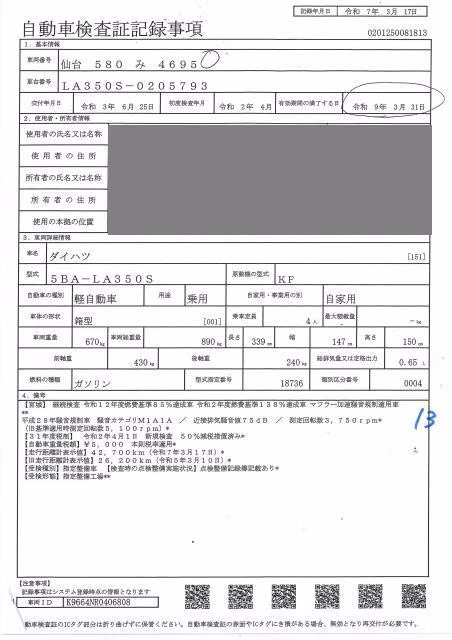 記録年月日 令和 7年 3月 17日
自動車検査証記録事項
0201250081813
1. 基本情報
車両番号 仙台 580 み 4695
車台番号 LA350S-0205793
交付年月日 令和 3年 6月 25日 初度検査年月 令和 2年 4月 有効期間の満了する日 令和 9年 3月 31日
2. 使用者・所有者情報
使用者の氏名又は名称
使用者の住所
所有者の氏名又は名称
所有者の住所
使用の本拠の位置
3. 車両詳細情報
車名 ダイハツ [151]
型式 5BA-LA350S 原動機の型式 KF
自動車の種別 軽自動車 用途 乗用 自家用・事業用の別 自家用
車体の形状 箱型 [001] 乗車定員 4人 最大積載量 -kg
車両重量 670kg 車両総重量 890kg 長さ 339cm 幅 147cm 高さ 150cm
前軸重 430kg 後軸重 240kg 総排気量又は定格出力 0.65 L
燃料の種類 ガソリン 型式指定番号 18736 類別区分番号 0004
4. 備考
【宮城】 継続検査 令和12年度燃費基準85%達成車 令和2年度燃費基準138%達成車 マフラー加速騒音規制適用車
**
平成28年騒音規制車 騒音カテゴリM1A1A / 近接排気騒音値75dB / 測定回転数3,750rpm*
(旧基準適用時測定回転数5,100rpm)*
【31年度税制】 令和2年4月1日 新規検査 50%減税措置済み*
【自動車重量税額】 ¥5,000 本則税率適用*
【走行距離計表示値】 42,700km(令和7年3月17日)*
【旧走行距離計表示値】 26,200km(令和5年3月10日)*
【受検種別】指定整備車 【検査時の点検整備実施状況】点検整備記録簿記載あり*
【受検形態】指定整備工場**
13
【注意事項】
記録事項はシステム登録時点の情報となります
車両ID K9664NR0406808
自動車検査証のICタグ部分は折り曲げずに保管ください。自動車検査証の券面やICタグにき損がある場合、無効となり再交付が必要です。